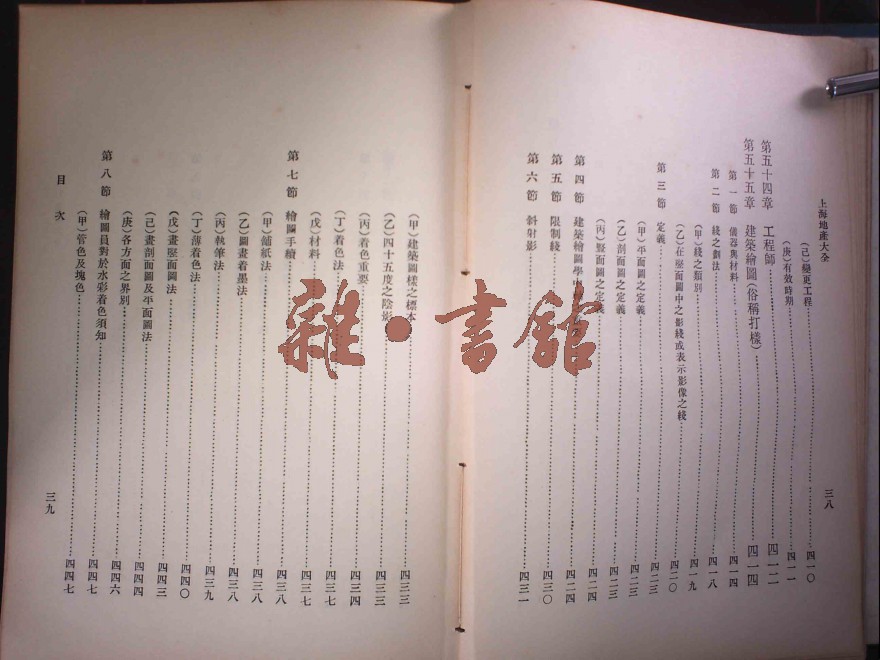 上海地產大全
三八
(己)變更工程 四一〇
(庚)有效時期 四一一
第五十四章 工程師 四一二
第五十五章 建築繪圖(俗稱打樣) 四一四
第一節 儀器與材料 四一四
第二節 綫之劃法 四一八
(甲)綫之類別 四一九
(乙)在竪面圖中之影綫或表示影像之綫 四二〇
第三節 定義 四二三
(甲)平面圖之定義 四二三
(乙)剖面圖之定義 四二三
(丙)竪面圖之定義 四二四
第四節 建築繪圖學 四二四
第五節 限制綫 四三〇
第六節 斜射影 四三一
(甲)建築圖樣之標本 四三三
(乙)四十五度之陰影 四三三
(丙)着色重要 四三四
(丁)着色法 四三七
(戊)材料 四三七
第七節 繪圖手續 四三八
(甲)舖紙法 四三八
(乙)圖畫着墨法 四三八
(丙)執筆法 四三九
(丁)薄着色法 四四〇
(戊)畫竪面圖法 四四三
(己)畫剖面圖及平面圖法 四四四
(庚)各方面之界別 四四六
第八節 繪圖員對於水彩着色須知 四四七
(甲)管色及塊色 四四七
目次
三九
雜·書館